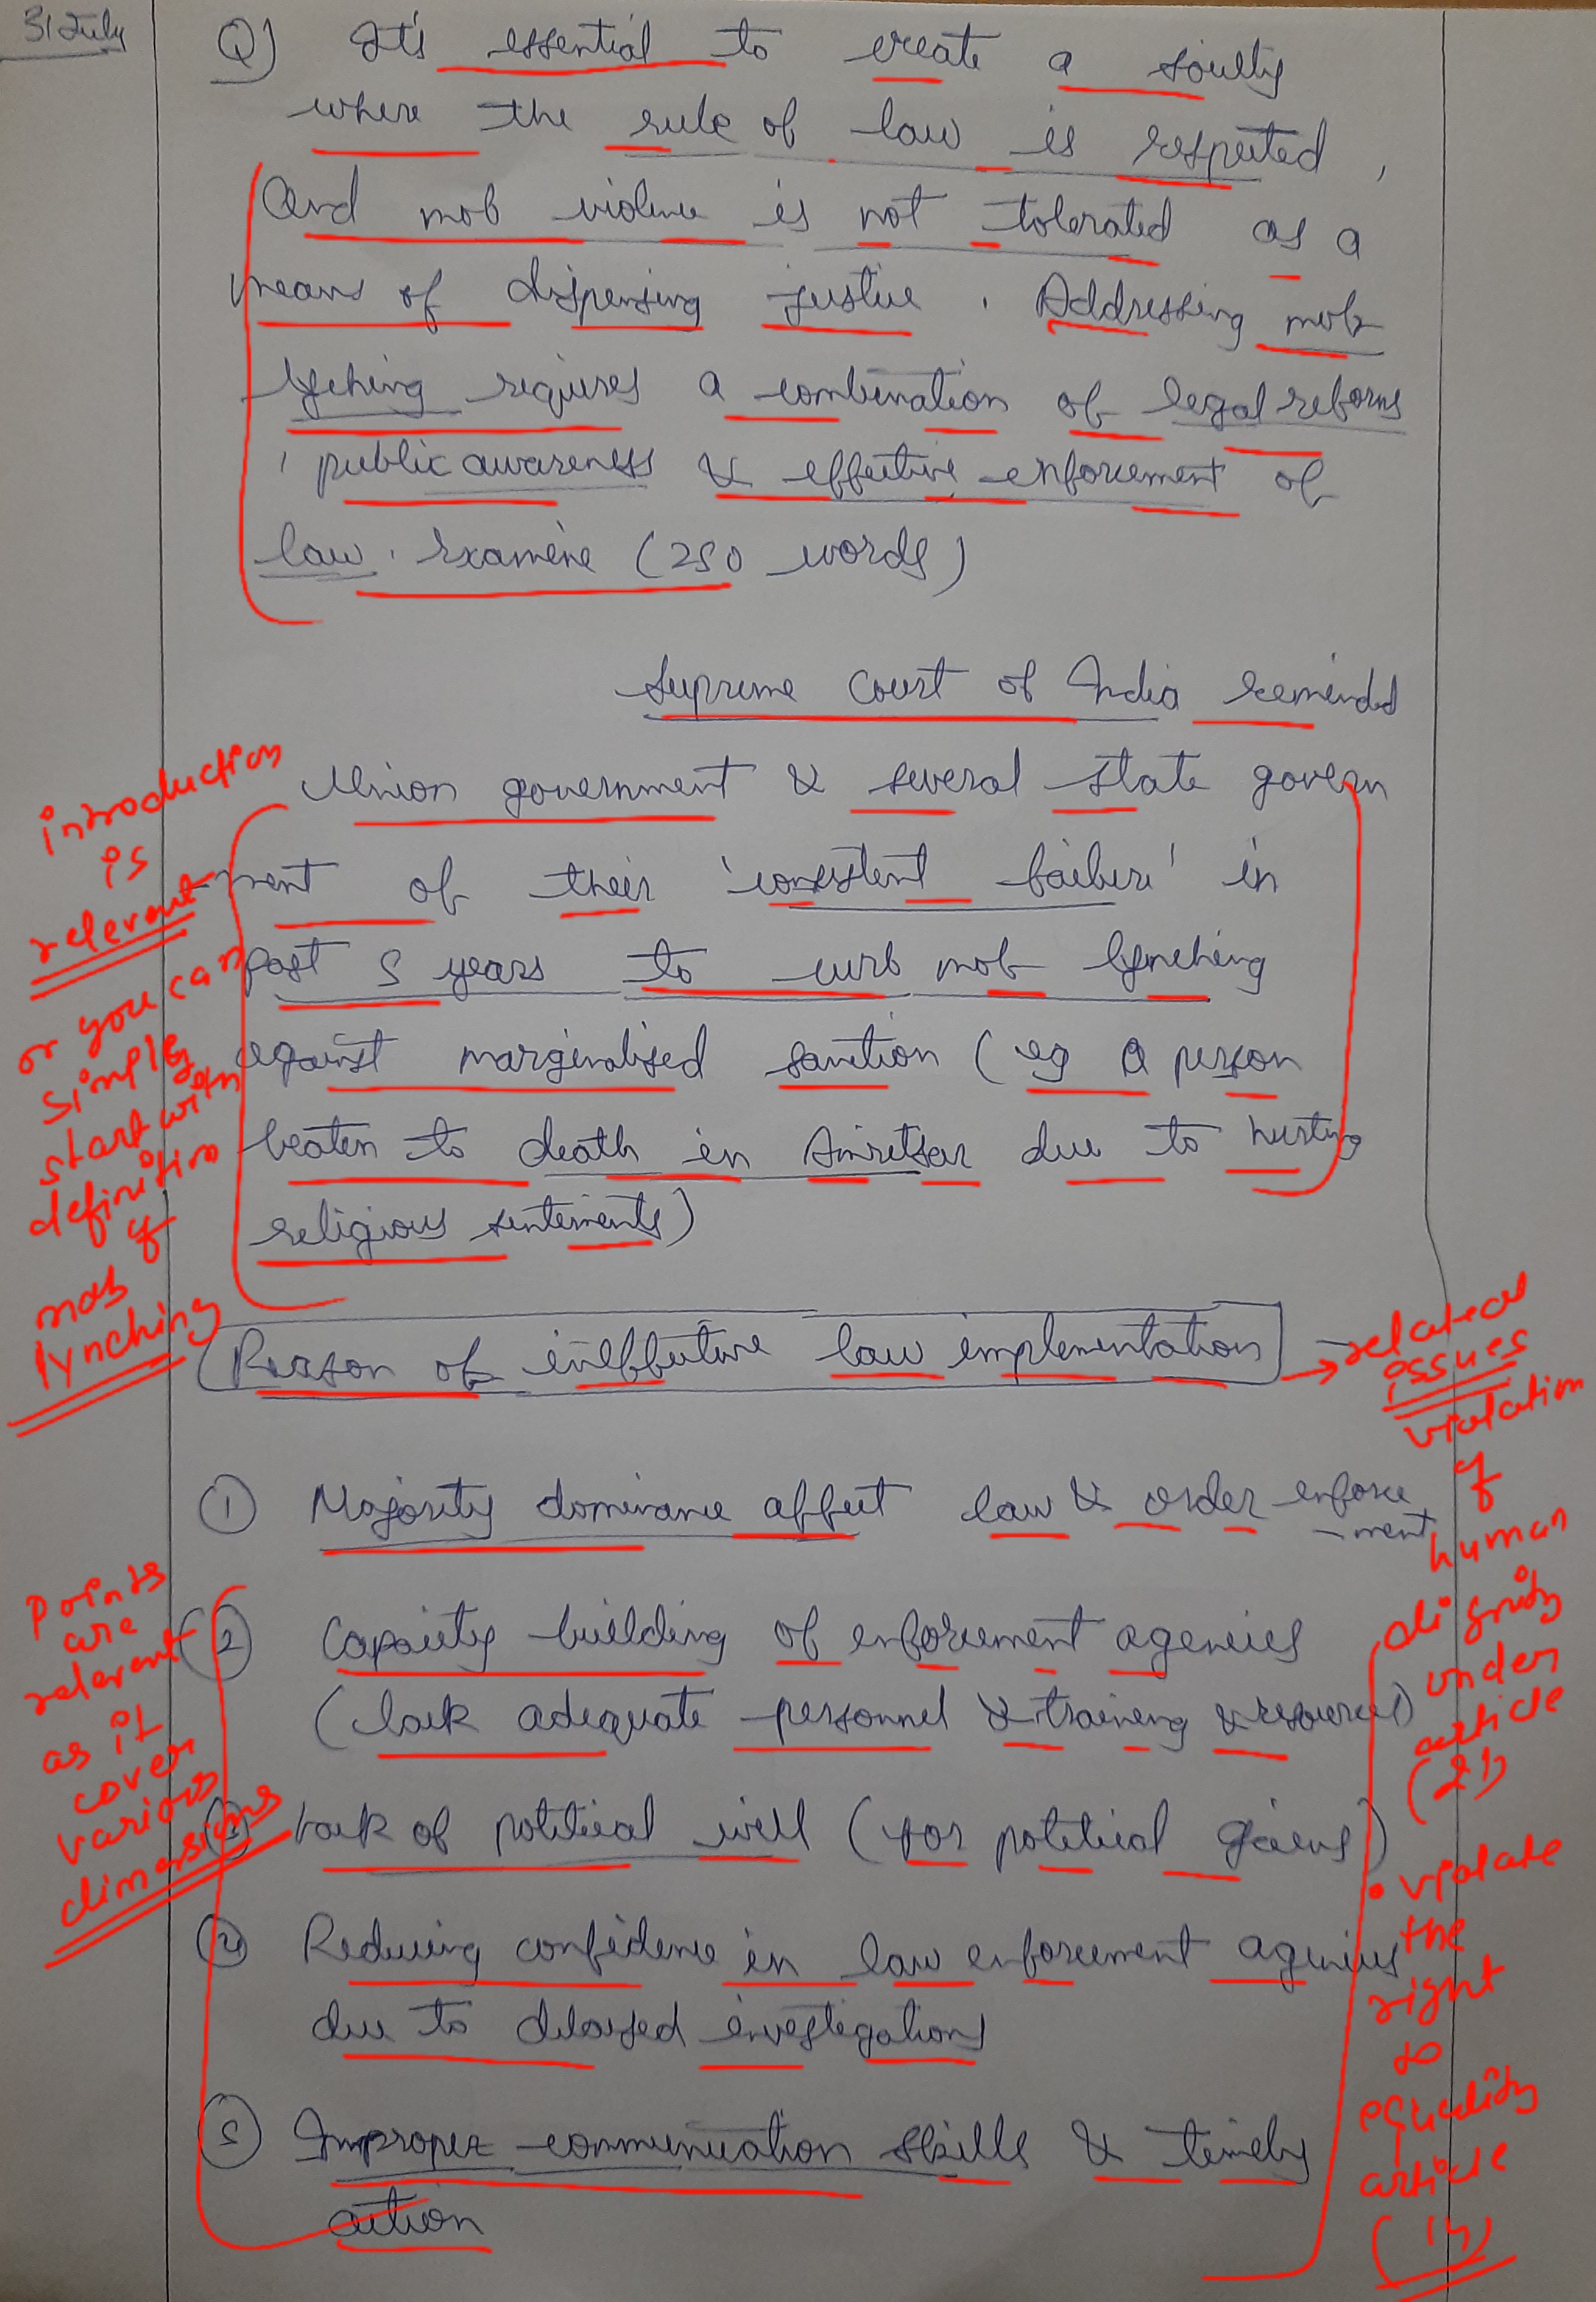 31 July
Q) It's essential to create a society
where the rule of law is respected,
And mob violence is not tolerated as a
means of dispensing justice. Addressing mob
lynching requires a combination of legal reforms
, public awareness & effective enforcement of
law. Examine (250 words)
Supreme Court of India reminded
Union government & several state govern
ment of their 'consistent failure' in
past 5 years to curb mob lynching
against marginalised sanction (eg A person
beaten to death in Amritsar due to hurting
religious sentiments)
introduction
is
relevant
or you can
simply
start with
definition
of
mob
lynching
Reason of ineffective law implementation
→ related
issues
violation
of
human
dignity
under
article
(21)
• violate
the
right
to
equality
article
(14)
① Majority dominance affect law & order enforce
-ment
② Capacity building of enforcement agencies
(lack adequate personnel & training & resources)
③ Lack of political will (for political gains)
④ Reducing confidence in law enforcement agencies
due to delayed investigations
⑤ Improper communication skills & timely
action
Points
are
relevant
as it
cover
various
dimensions